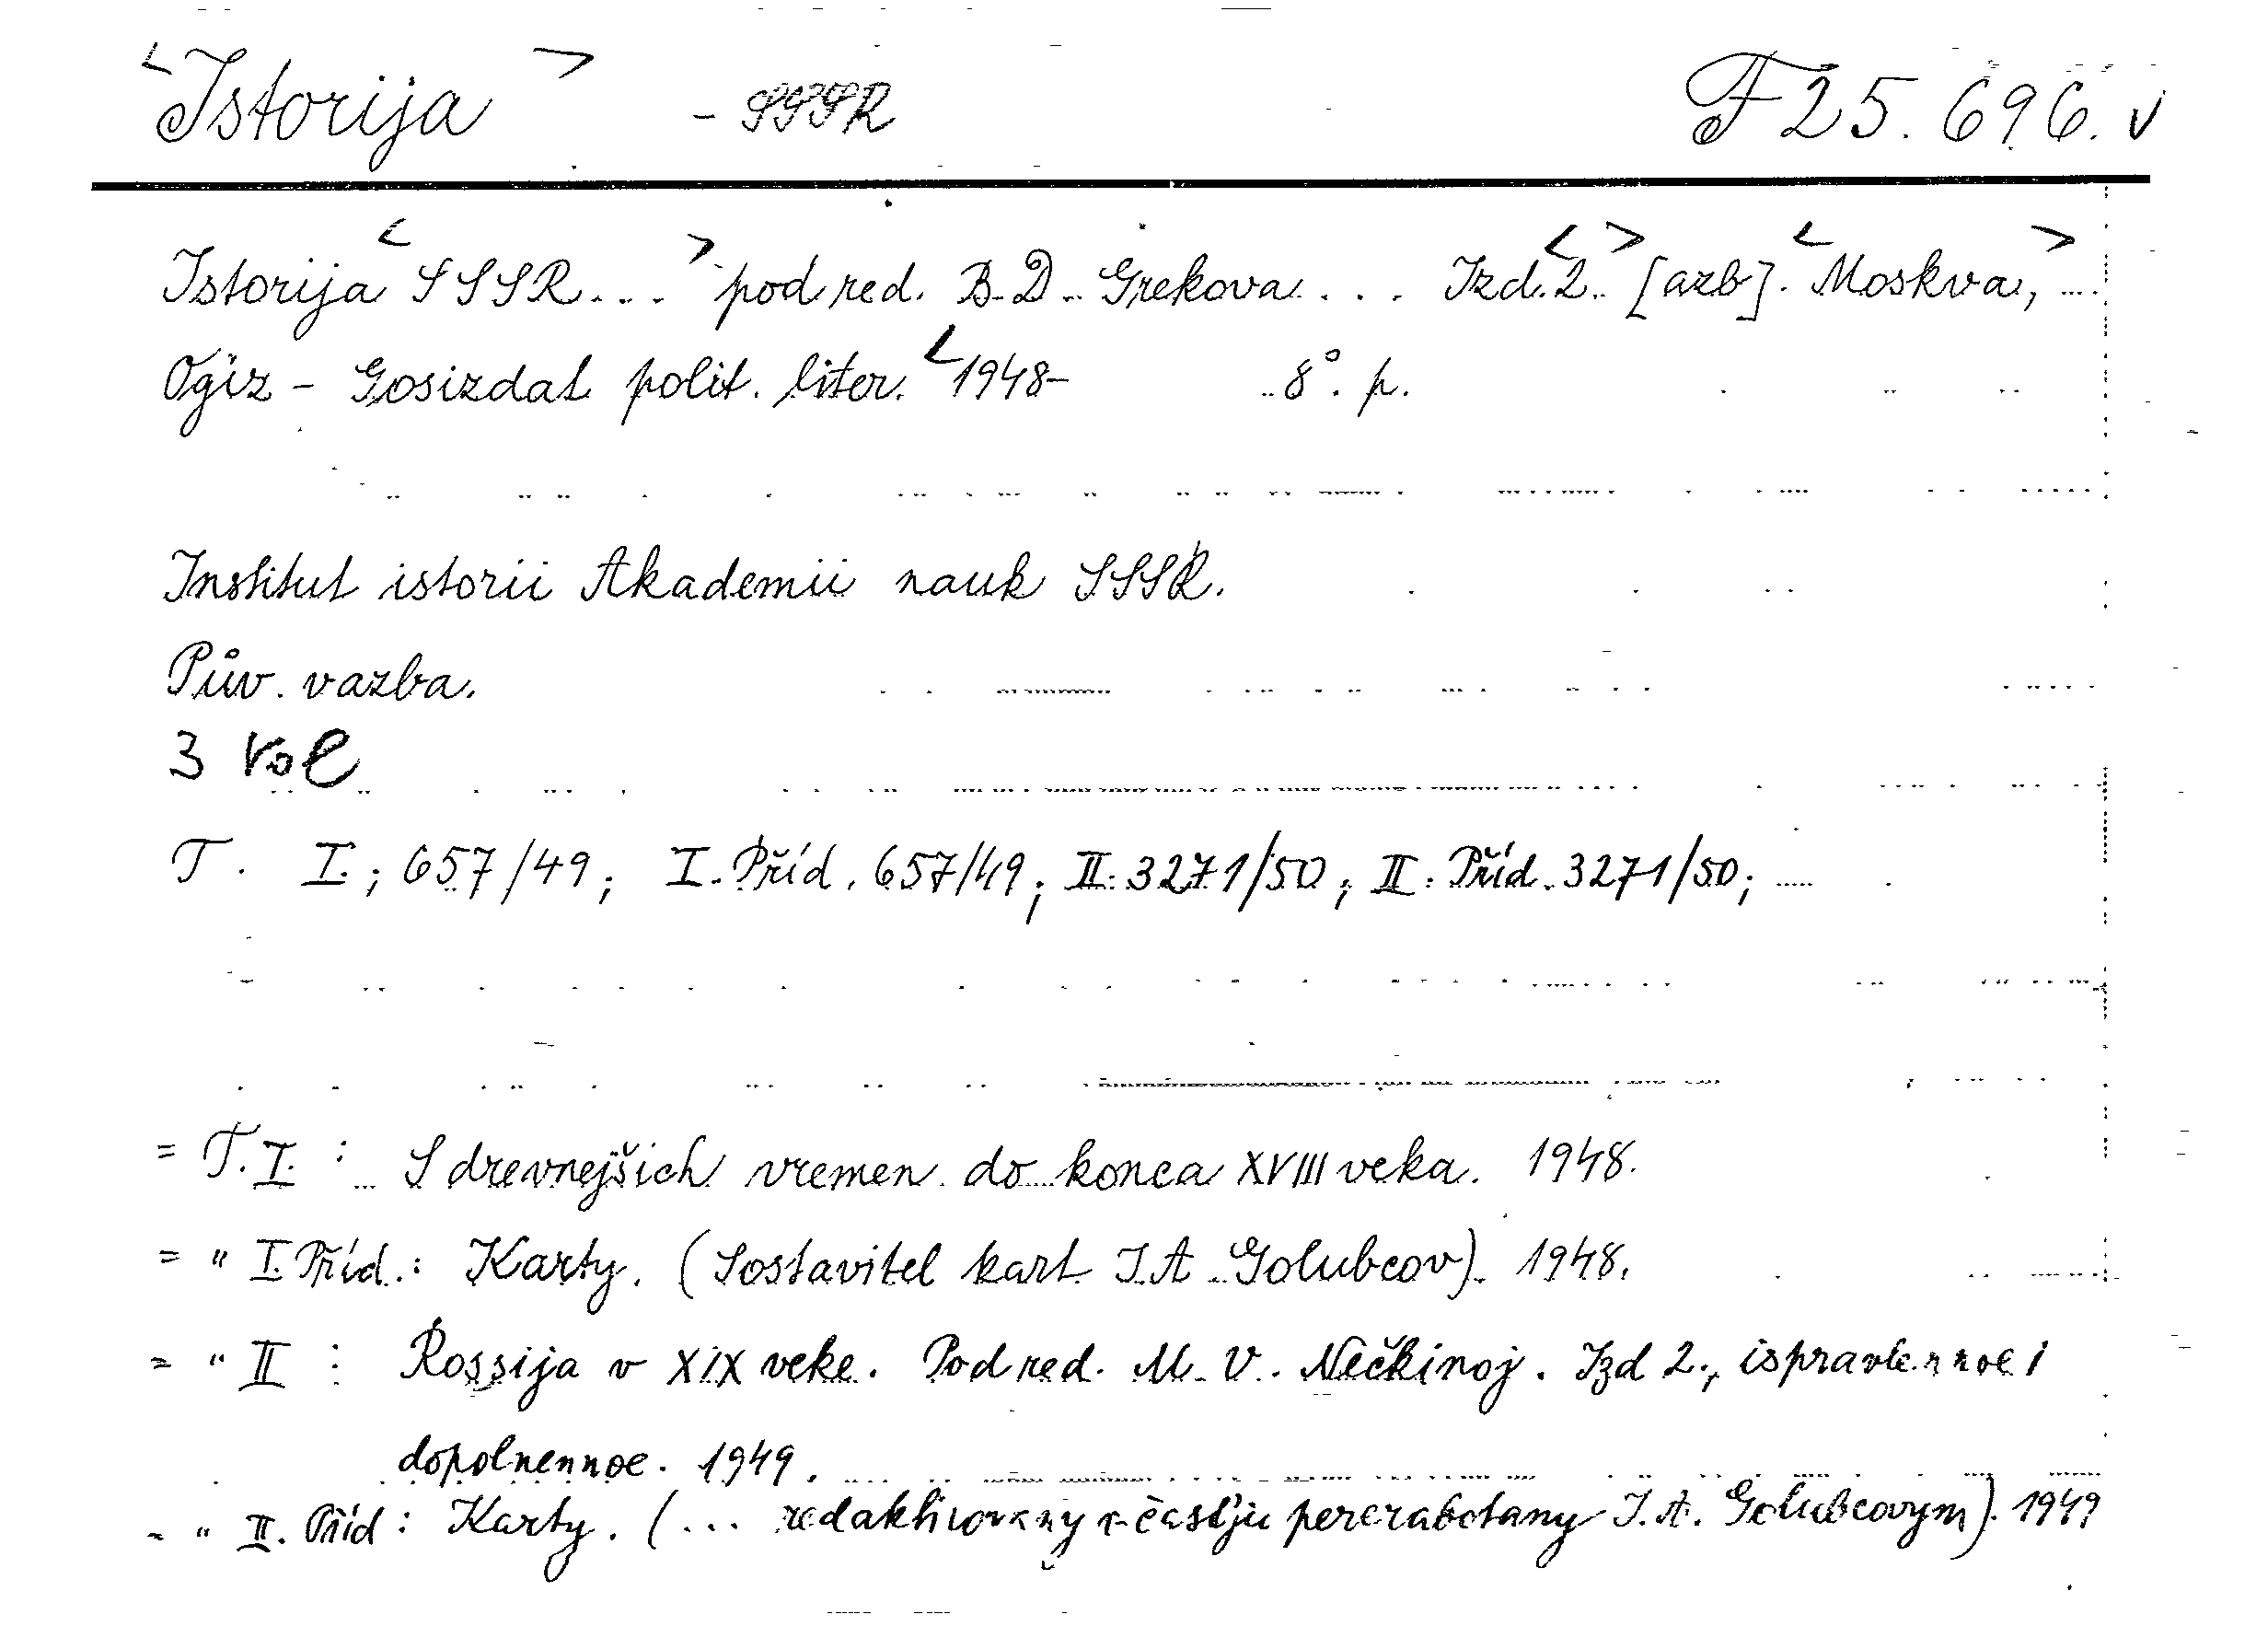 <Istorija> - SSSR F 25.696. v
Istorija <SSSR...> pod red. B. D. Grekova... Izd. <2.> [azb]. <Moskva,>
Ogiz - Gosizdat polit. liter. <1948- 8°. p.
Institut istorii Akademii nauk SSSR.
Pův. vazba.
3 vol
T. I.; 657/49; I. Příd. 657/49; II. 3271/50; II. Příd. 3271/50;
= T. I. : S drevnejšich vremen do konca XVIII veka. 1948.
= " I. Příd.: Karty. (Sostavitel kart I. A. Golubcov). 1948.
= " II : Rossija v XIX veke. Pod red. M. V. Nečkinoj. Izd 2., ispravlennoe i
dopolnennoe. 1949.
= " II. Příd: Karty. (... redaktirovany časťju pererabotany I. A. Golubcovym). 1949